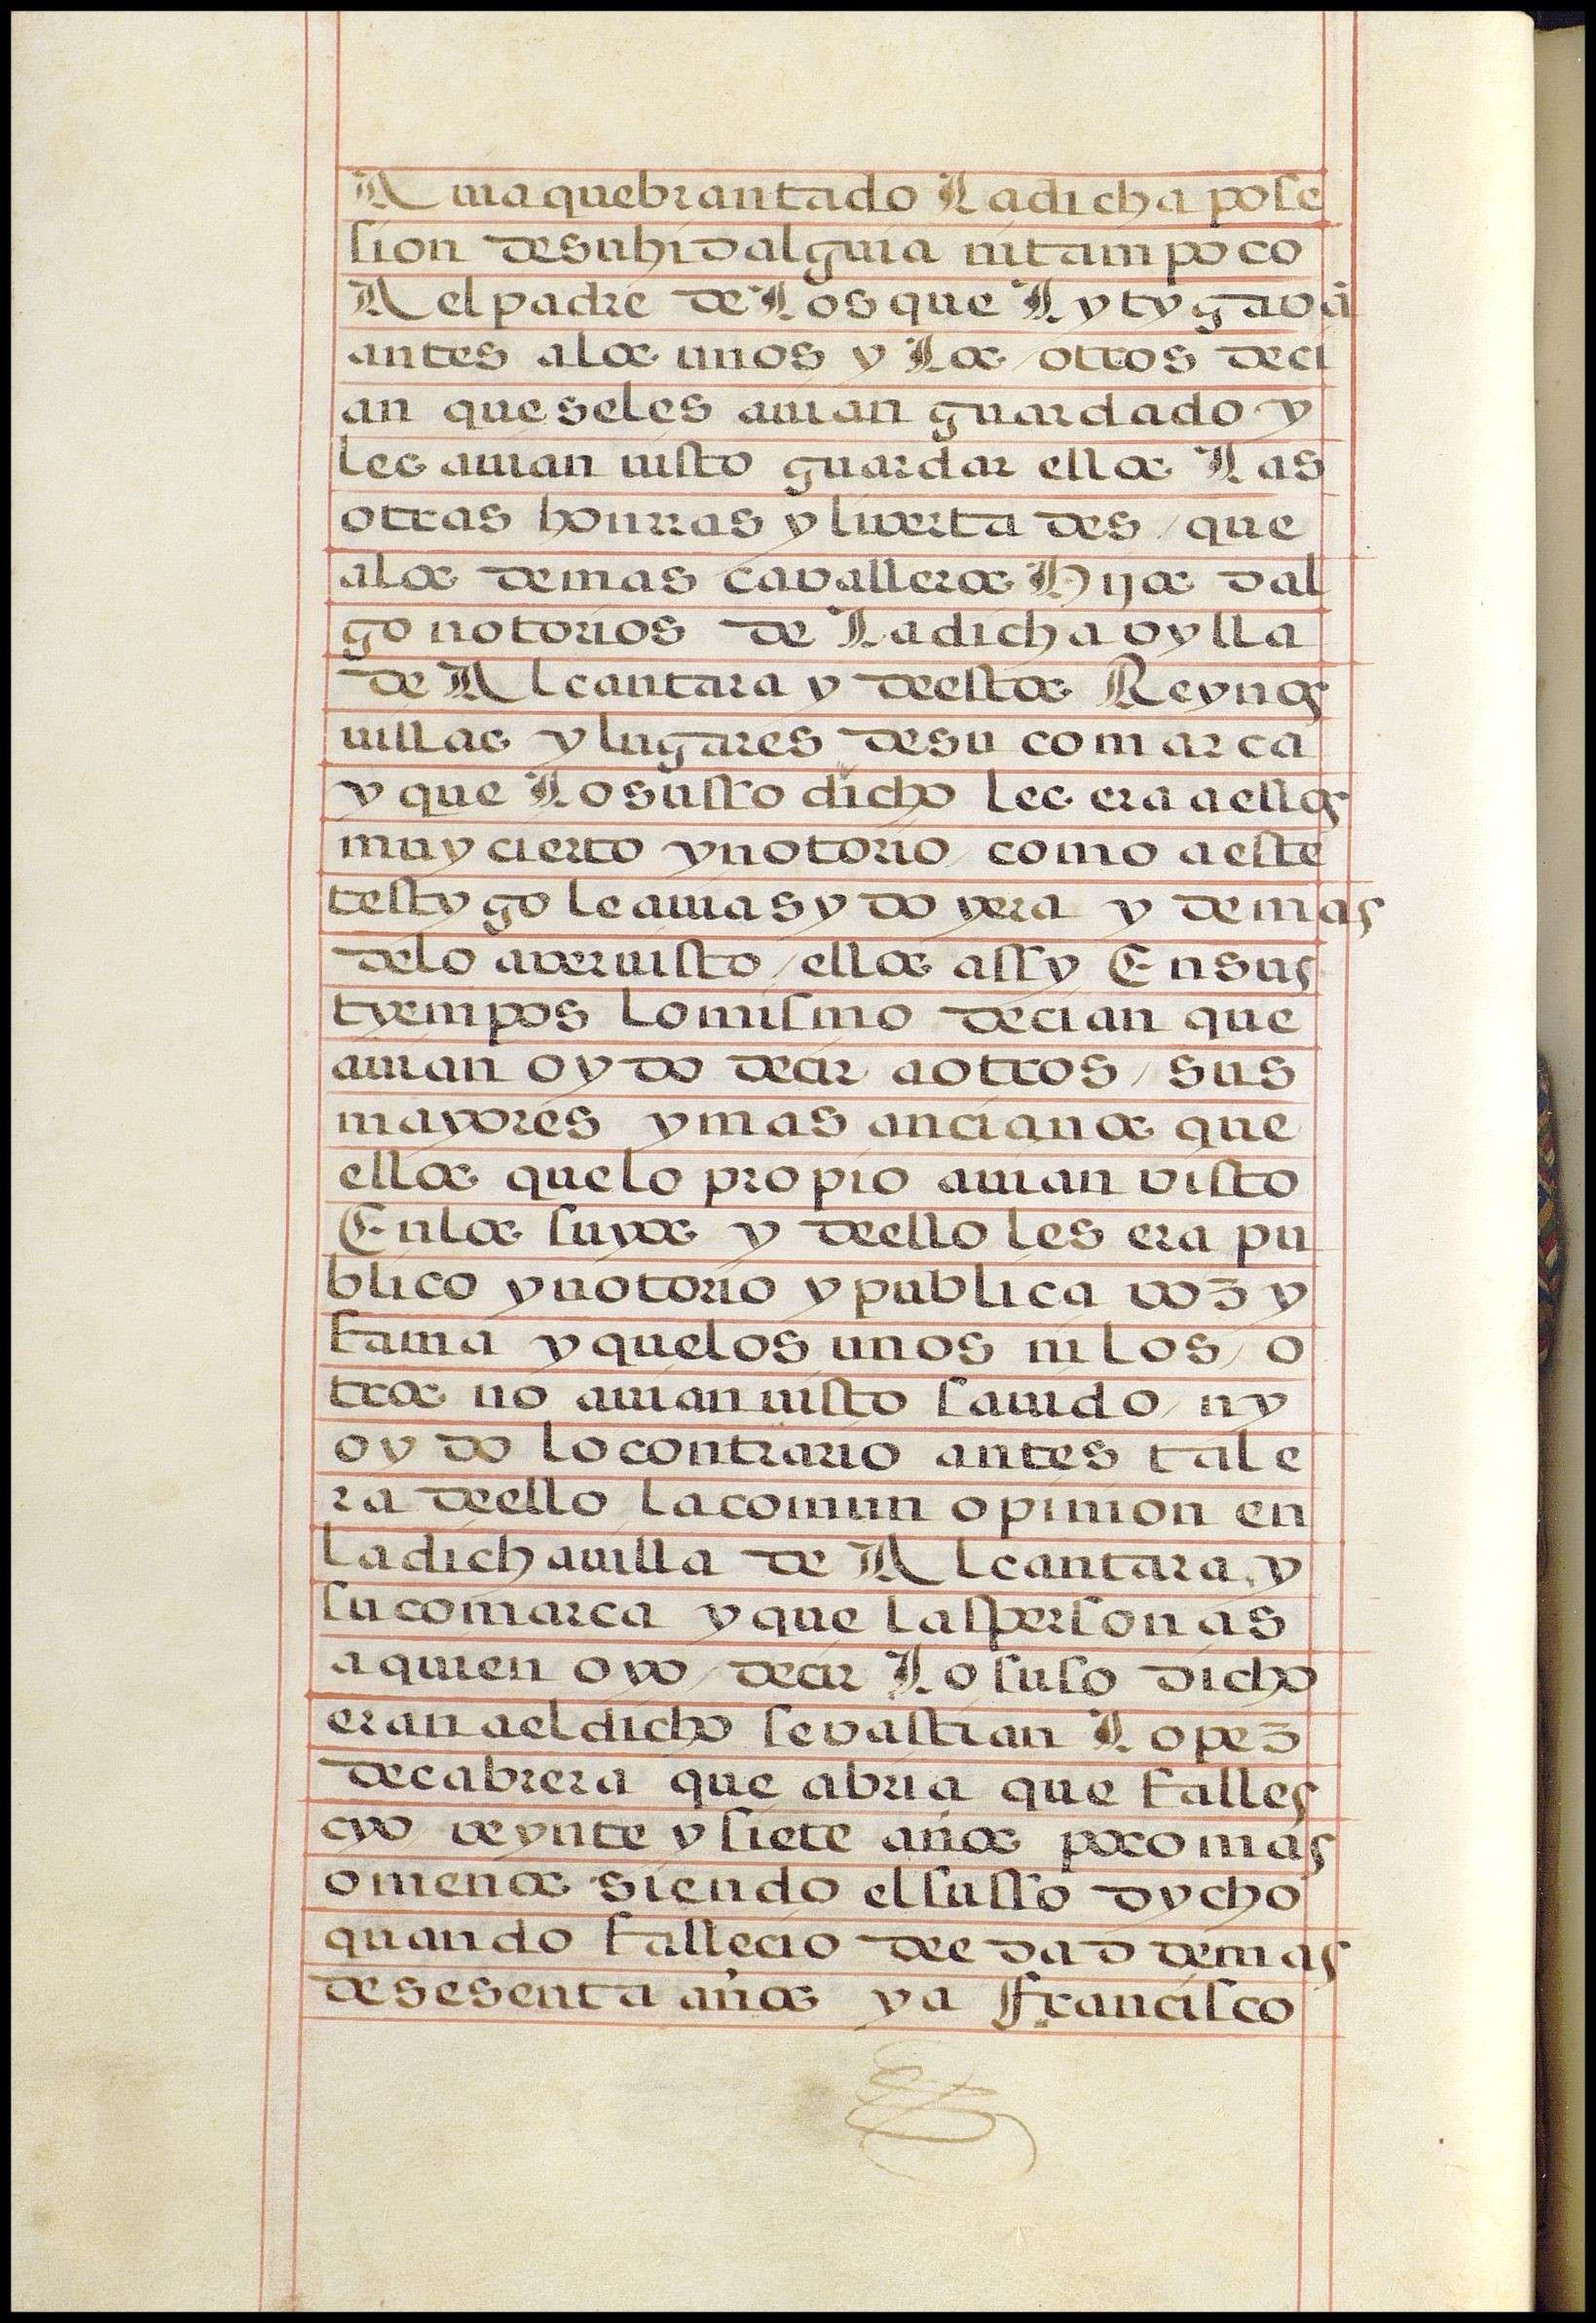 Auia quebrantado La dicha pose
sion de su hidalguia ni tampoco
A el padre de Los que Lytygavā
antes a los unos y Los otros deci
an que se les auian guardado y
les auian uisto guardar ellos Las
otras honrras y livertades que
a los demas cavalleros Hijos dal
go notorios de La dicha vylla
de Alcantara y de estos Reynos
uillas y lugares de su comarca
y que Lo susso dicho les era a ellos
muy cierto y notorio como a este
testygo le auia sydo y era y demas
de lo aver uisto ellos assy En sus
tyempos lo mismo decian que
auian oydo decir a otros sus
mayores y mas ancianos que
ellos que lo propio auian visto
En los suyos y de ello les era pu
blico y notorio y publica voz y
fama y que los unos ni los o
tros no auian uisto sauido ny
oydo lo contrario antes tal e
ra de ello la comun opinion en
la dicha uilla de Alcantara y
su comarca y que las personas
a quien oyo decir Lo suso dicho
eran a el dicho sevastian Lopez
de cabrera que abria que falles
cyo veynte y siete años poco mas
o menos siendo el susso dycho
quando fallecio de edad de mas
de sesenta años y a Francisco